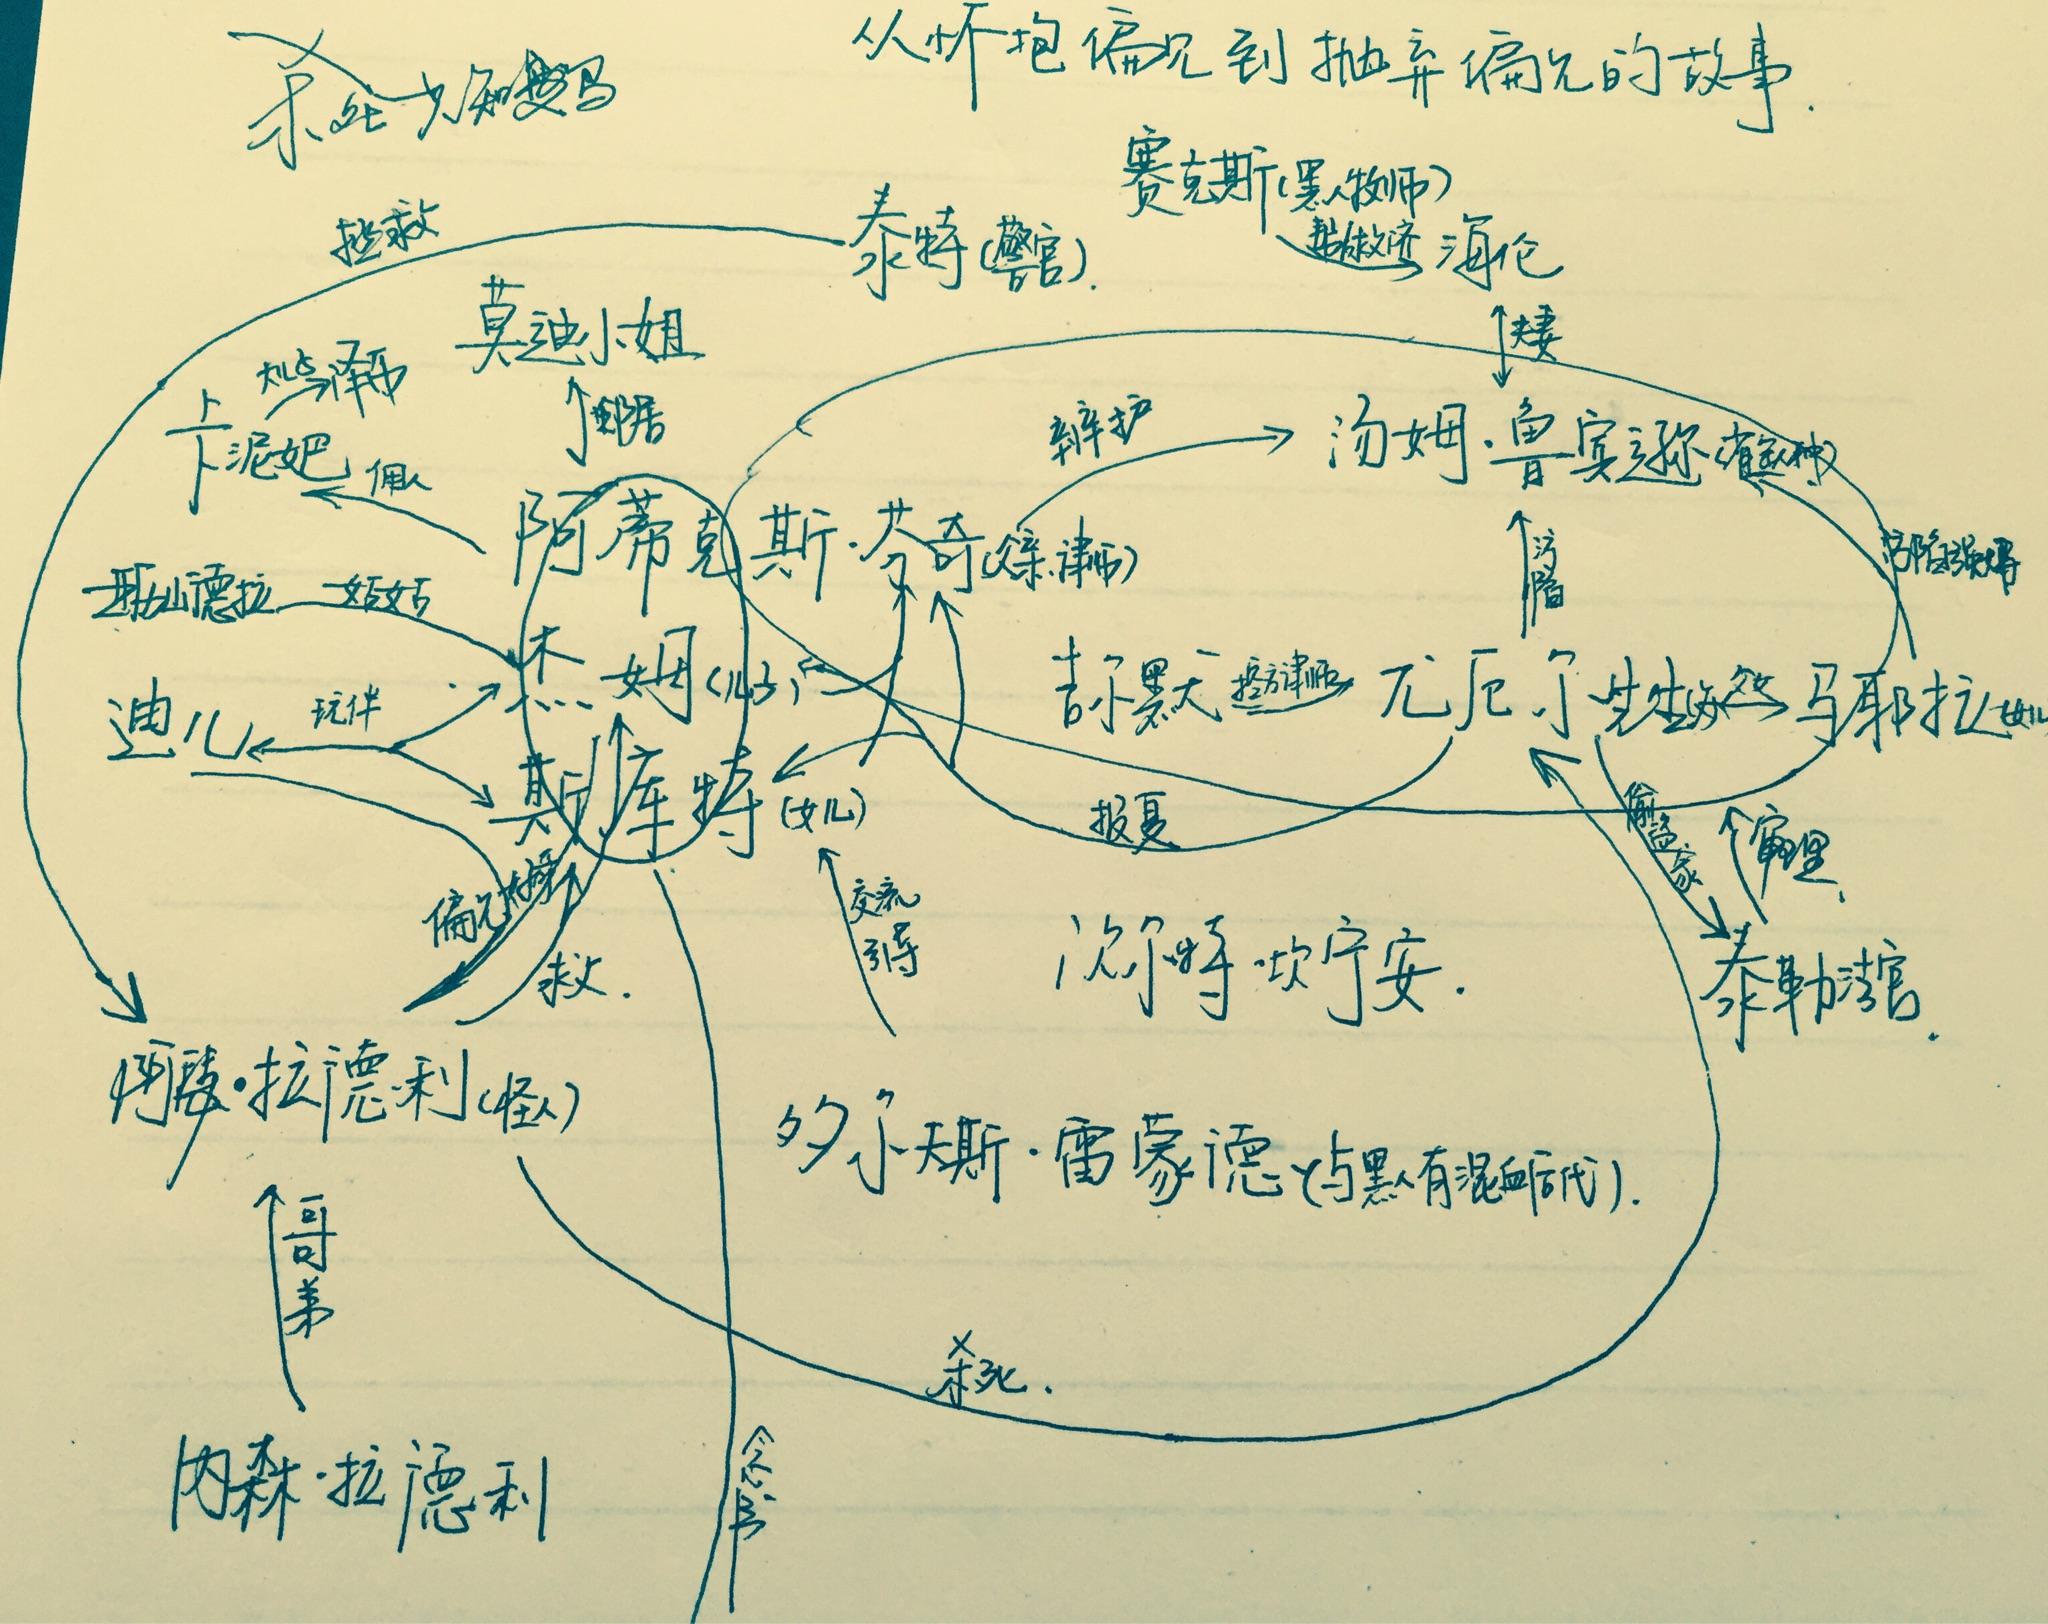 从怀抱偏见到抛弃偏见的故事.
杀死一只知更鸟
赛克斯(黑人牧师)
拯救
泰特(警官).
救济
海伦
莫迪小姐
夫妻
卡泥妃
邻居
辩护
汤姆·鲁宾逊
佣人
阿蒂克斯·芬奇(父亲、律师)
诬陷强奸
诬陷
亚历山德拉
姑姑
杰姆(儿子)
吉尔默
控方律师
尤厄尔先生
父女
马耶拉(女儿)
迪儿
玩伴
斯库特(女儿)
报复
偷盗家
审理.
偏见
交流
引导
救.
沃尔特·坎宁安.
泰勒法官.
阿瑟·拉德利(怪人)
多尔夫斯·雷蒙德(与黑人有混血后代).
哥弟
杀死.
内森·拉德利
念书